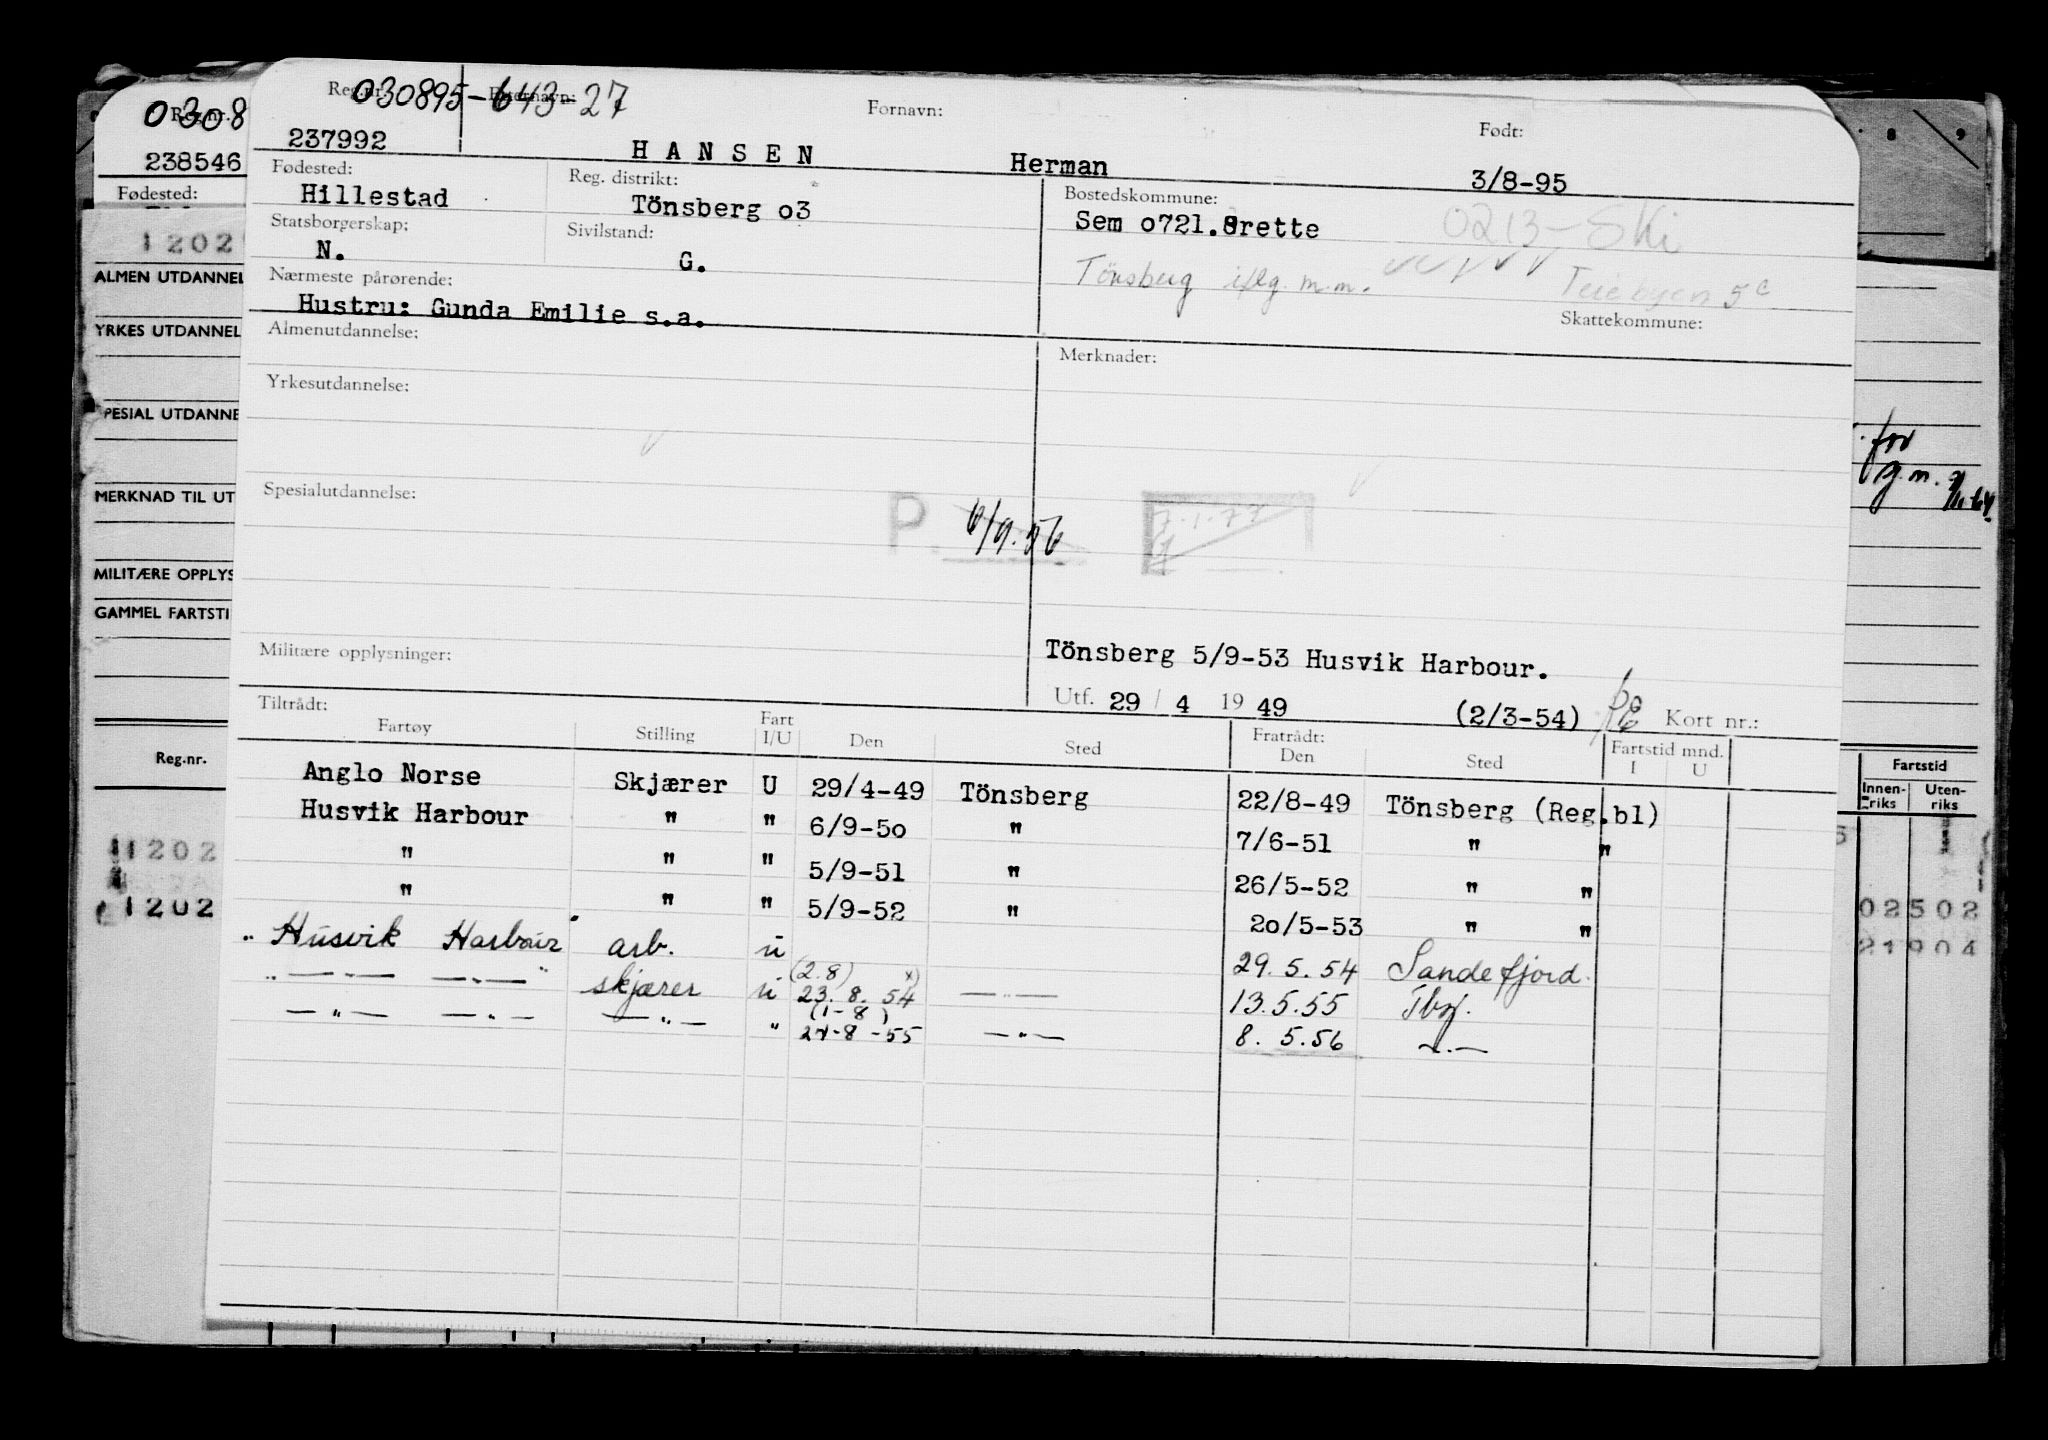 Reg.nr. 030895-643-27 Etternavn: Fornavn: Født:
237992 HANSEN Herman 3/8-95
Fødested: Reg. distrikt: Bostedskommune:
Hillestad Tönsberg o3 Sem o721. rette 0213-Ski
Statsborgerskap: Sivilstand:
N. G.
Tönsberg iflg. m.m. Teiebyen 5c
Nærmeste pårørende: Skattekommune:
Hustru: Gunda Emilie s.a.
Almenutdannelse: Merknader:
Yrkesutdannelse:
Spesialutdannelse:
P. 6/9.56 7.1.77
Militære opplysninger: Tönsberg 5/9-53 Husvik Harbour.
Utf. 29 / 4 19 49 (2/3-54) Kort nr.:
Tiltrådt: Fratrådt: Fartstid mnd.
Fartøy Stilling Fart I/U Den Sted Den Sted I U
Anglo Norse Skjærer U 29/4-49 Tönsberg 22/8-49 Tönsberg (Reg.bl)
Husvik Harbour " " 6/9-5o " 7/6-51 " "
" " " 5/9-51 " 26/5-52 " "
" " " 5/9-52 " 2o/5-53 " "
" Husvik Harbour arb. u 29.5.54 Sandefjord.
(2.8) x)
" — " — — " — " skjærer u 23.8.54 — " — 13.5.55 Tbg.
(1-8)
— " — — " — — " — " 24-8-55 — " — 8.5.56 — " —
0308
Reg.nr.
238546
Fødested:
1202
ALMEN UTDANNEL
YRKES UTDANNEL
SPESIAL UTDANNE
MERKNAD TIL UT
MILITÆRE OPPLYS
GAMMEL FARTSTI
Reg.nr.
1202
1202
8 9
for
g.m.
Fartstid
Innen-riks Uten-riks
02502
21904